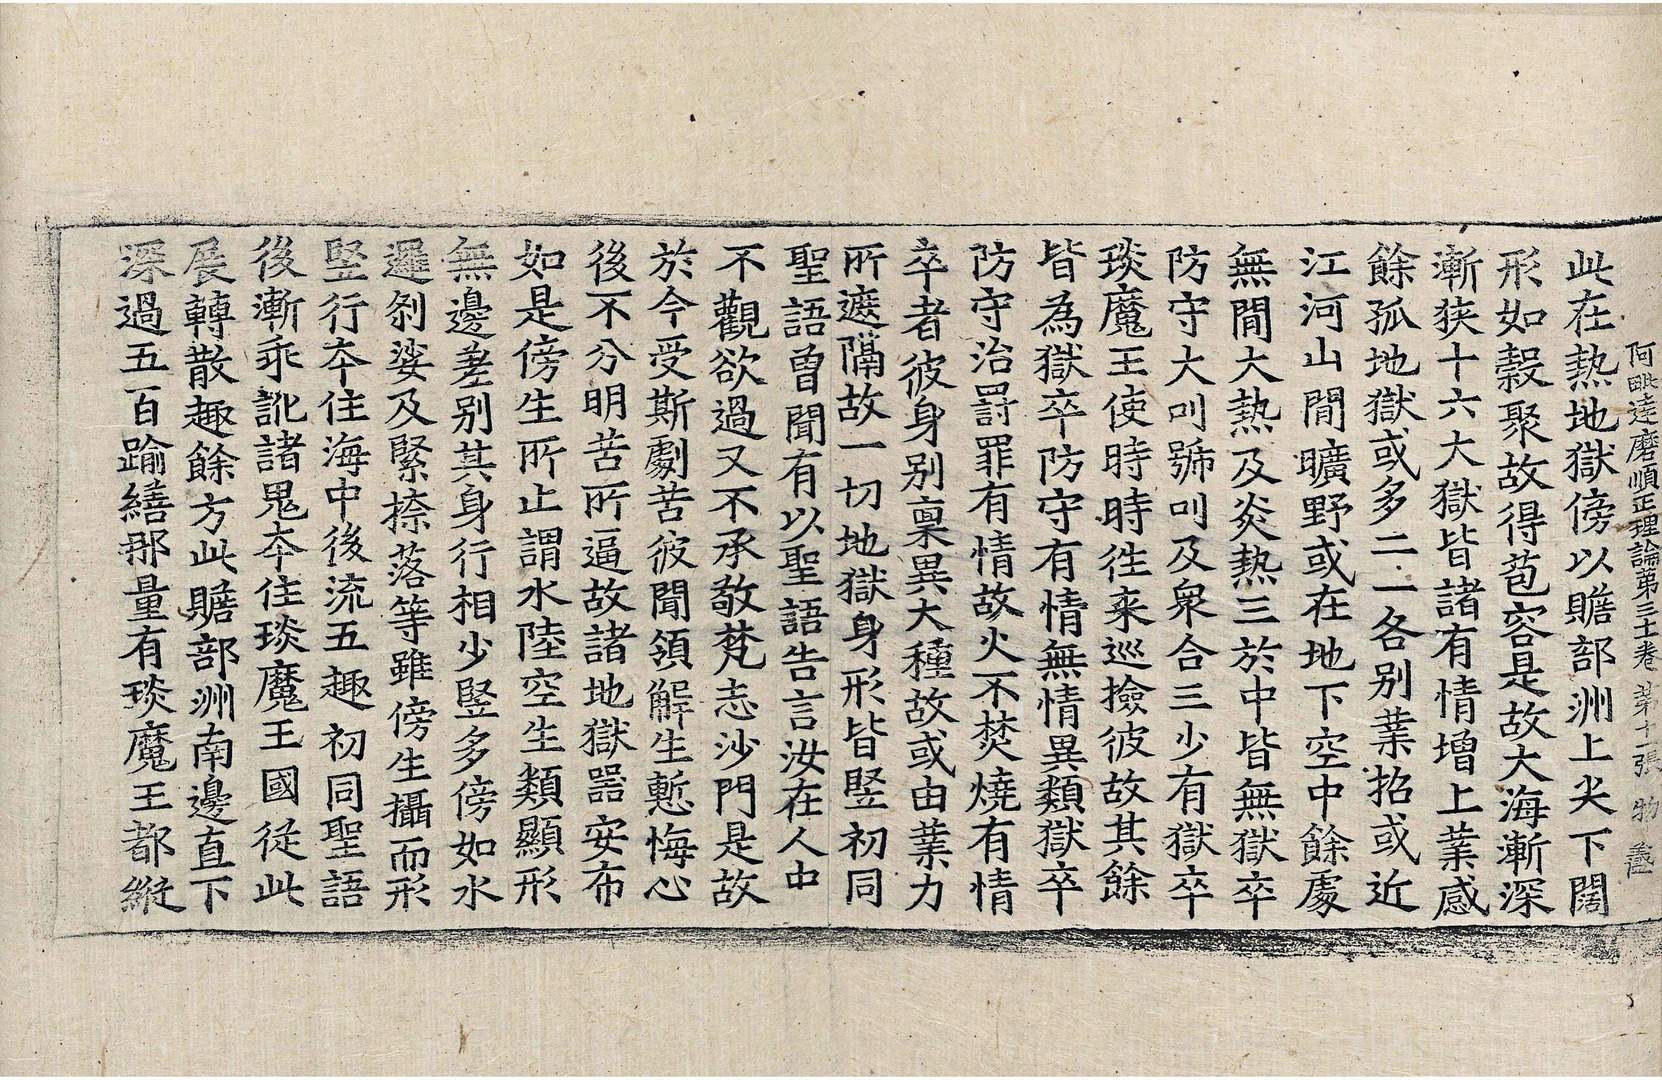 阿毗達磨順正理論第三十一卷 第十一張 物
此在熱地獄傍以贍部洲上尖下闊
形如穀聚故得苞容是故大海漸深
漸狹十六大獄皆諸有情增上業感
餘孤地獄或多二一各別業招或近
江河山閒曠野或在地下空中餘處
無閒大熱及炎熱三於中皆無獄卒
防守大叫號叫及衆合三少有獄卒
琰魔王使時時徃來巡撿彼故其餘
皆為獄卒防守有情無情異類獄卒
防守治罰罪有情故火不焚燒有情
卒者彼身別稟異大種故或由業力
所遮隔故一切地獄身形皆竪初同
聖語曾聞有以聖語告言汝在人中
不觀欲過又不承敬梵志沙門是故
於今受斯劇苦彼聞領解生慙悔心
後不分明苦所逼故諸地獄器安布
如是傍生所止謂水陸空生類顯形
無邊差別其身行相少竪多傍如水
邏剎娑及緊捺落等雖傍生攝而形
竪行本住海中後流五趣初同聖語
後漸乖訛諸鬼本住琰魔王國從此
展轉散趣餘方此贍部洲南邊直下
深過五百踰繕那量有琰魔王都縱